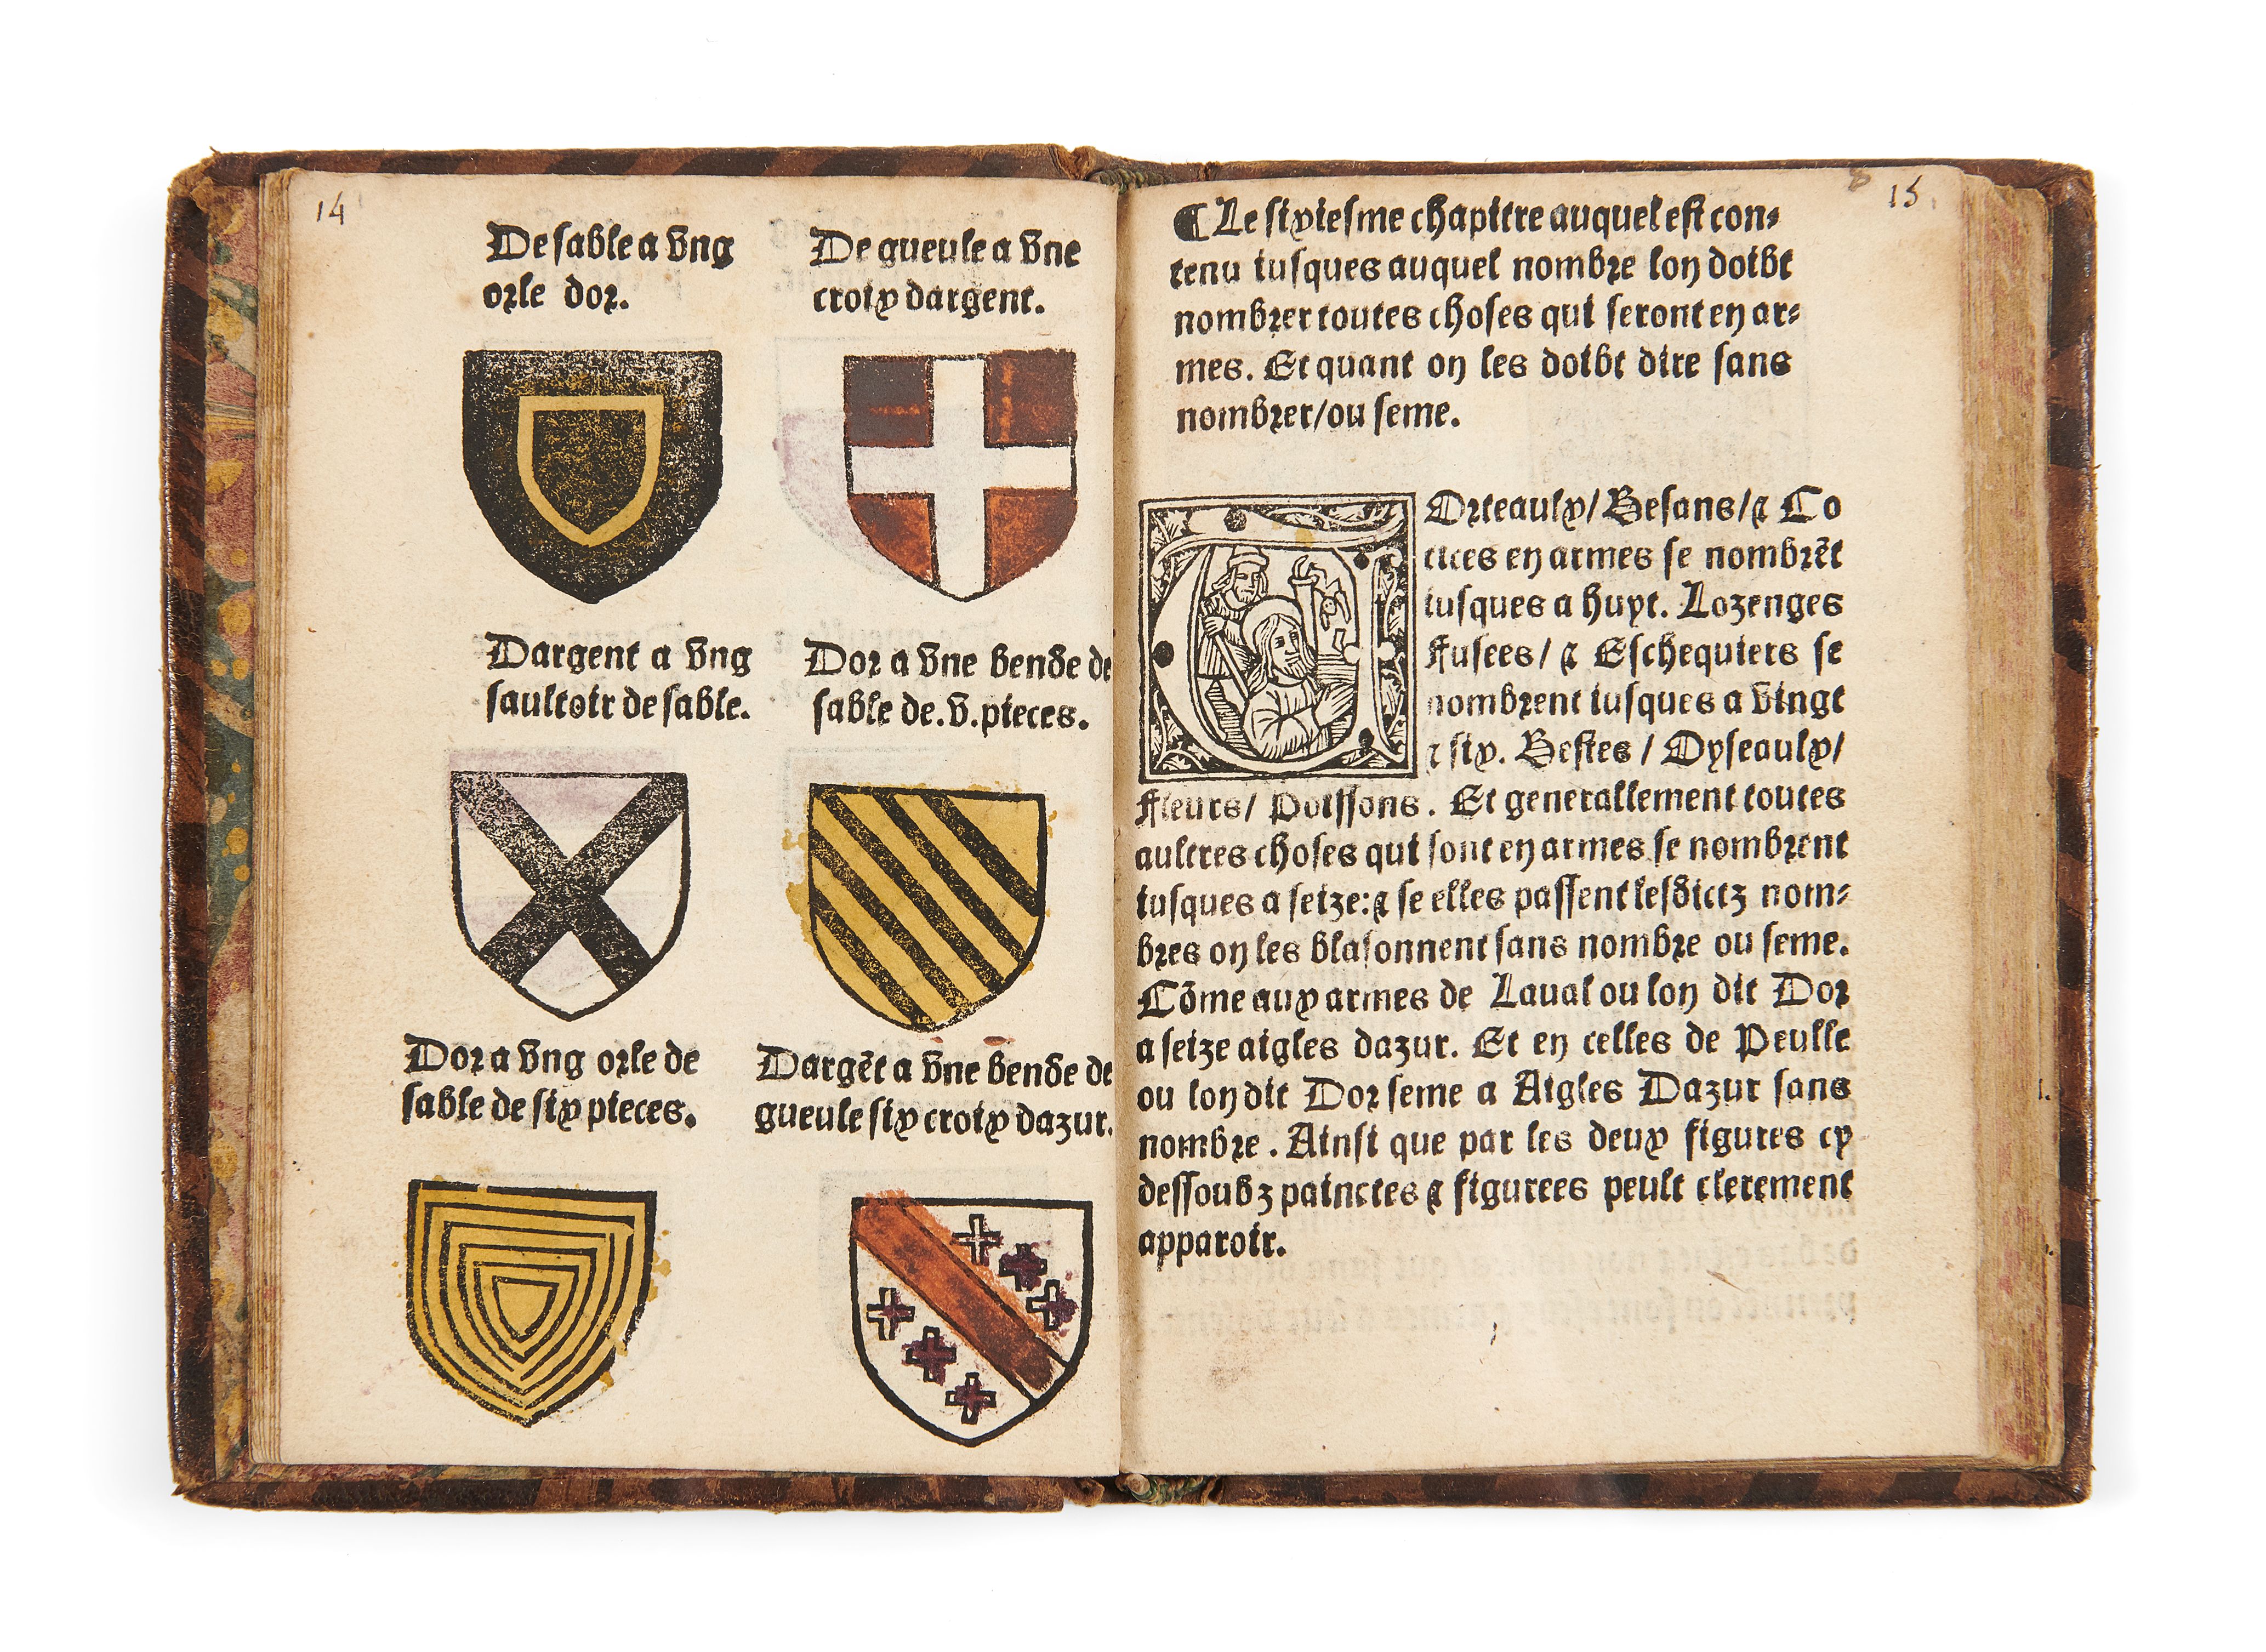 14
De sable a vng
orle dor.
De gueule a vne
croix dargent.
Dargent a vng
saultoir de sable.
Dor a vne bende de
sable de .v. pieces.
Dor a vng orle de
sable de six pieces.
Dargēt a vne bende de
gueule six croix dazur.
15
¶ Le sixiesme chapitre auquel est con⸗
tenu iusques auquel nombre lon doibt
nombrer toutes choses qui seront en ar⸗
mes. Et quant on les doibt dire sans
nombrer/ou seme.
TOrteaulx/Besans/⁊ Co
tices en armes se nombrēt
iusques a huyt. Lozenges
Fusees/ ⁊ Eschequiers se
nombrent iusques a vingt
⁊ six. Bestes / Oyseaulx/
Fleurs/ Poissons. Et generallement toutes
aultres choses qui sont en armes se nombrent
iusques a seize: ⁊ se elles passent lesdictz nom⸗
bres on les blasonnent sans nombre ou seme.
Cōme aux armes de Laual ou lon dit Dor
a seize aigles dazur. Et en celles de Peulle
ou lon dit Dor seme a Aigles Dazur sans
nombre. Ainsi que par les deux figures cy
dessoubz painctes ⁊ figurees peult clerement
apparoir.